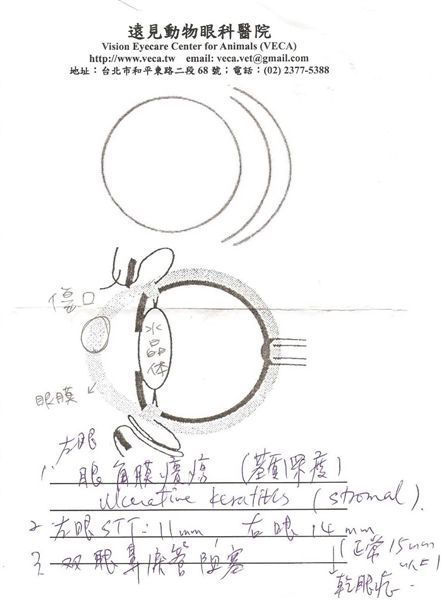 遠見動物眼科醫院
Vision Eyecare Center for Animals (VECA)
http://www.veca.tw email: veca.vet@gmail.com
地址：台北市和平東路二段 68 號；電話：(02) 2377-5388
傷口
水晶体
眼膜
左眼
1. 眼角膜潰瘍 (基質深度)
ulcerative keratitis (stromal).
2. 左眼 STT: 11mm, 右眼 14mm
(正常 15mm
3. 双眼鼻淚管阻塞
↓
乾眼症.